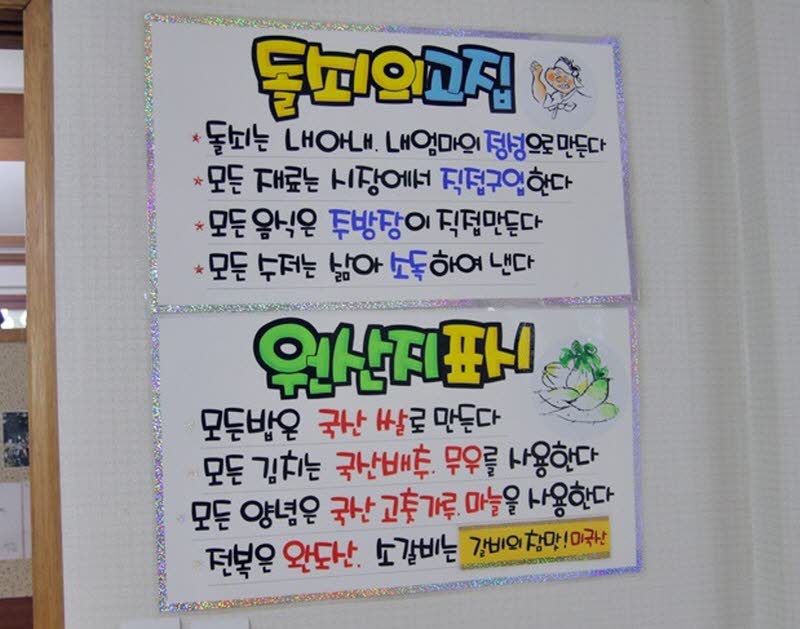 돌쇠의고집
*돌쇠는 내아내. 내엄마의 정성으로 만든다
*모든 재료는 시장에서 직접구입한다
*모든 음식은 주방장이 직접만든다
*모든 수저는 삶아 소독하여 낸다
원산지표시
모든밥은 국산 쌀로 만든다
모든 김치는 국산배추. 무우를 사용한다
모든 양념은 국산 고춧가루. 마늘을 사용한다
전복은 완도산. 소갈비는 갈비의참맛! 미국산